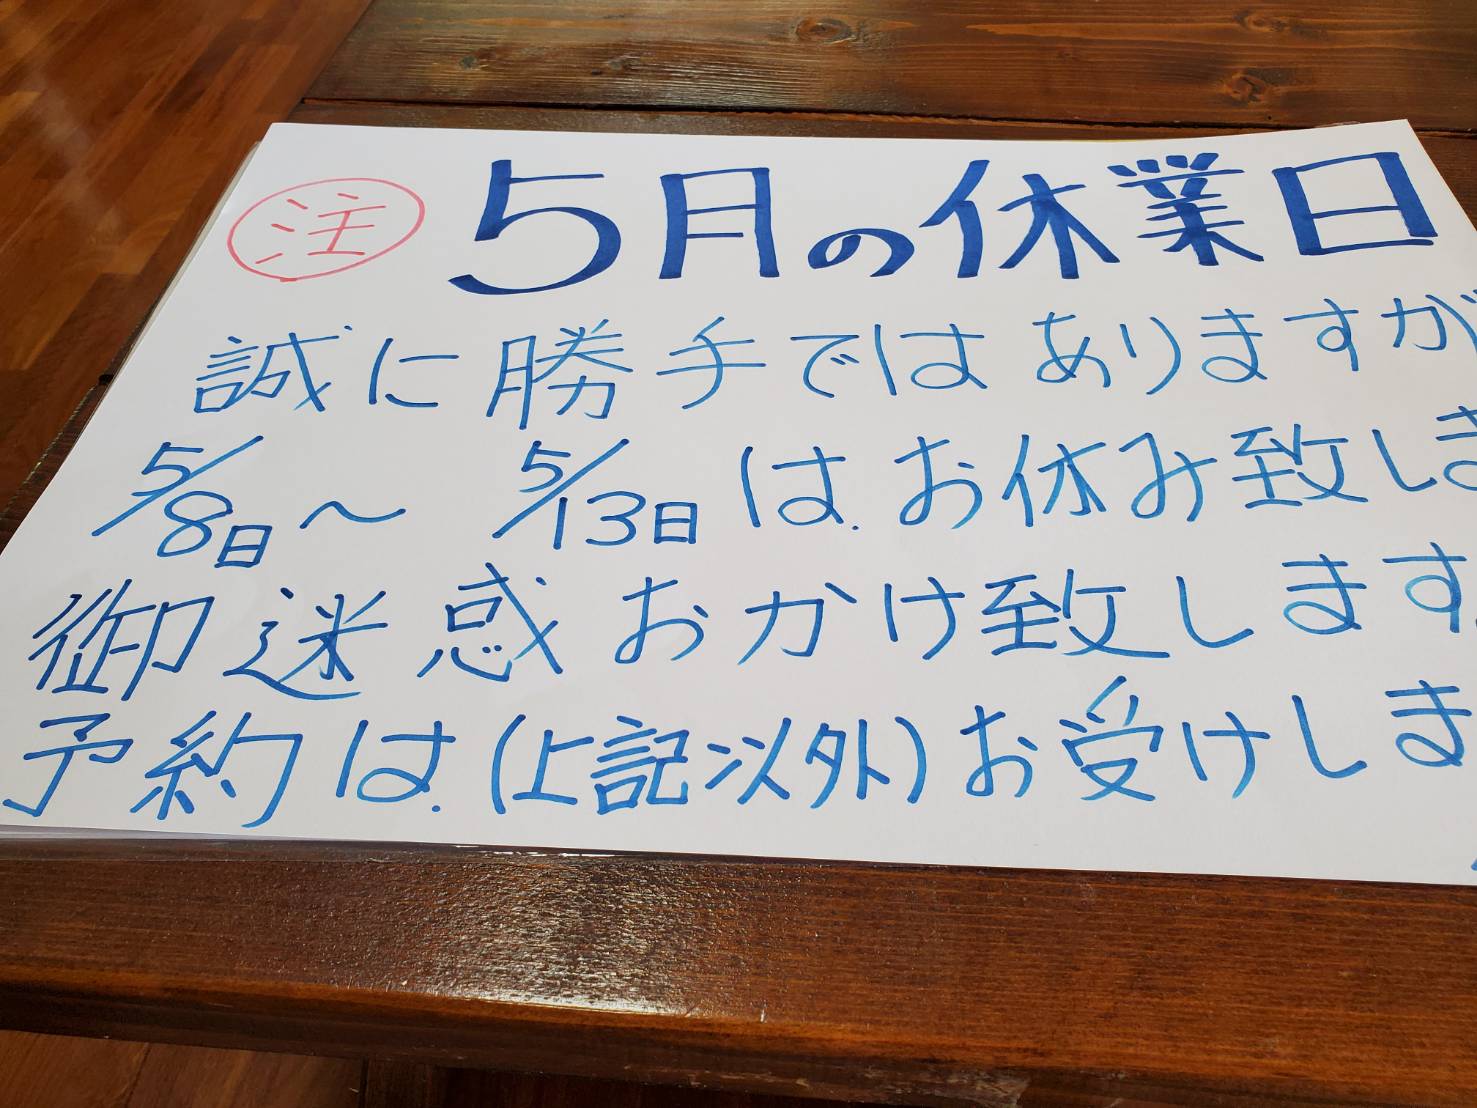 注 5月の休業日
誠に勝手ではありますが
5/8日〜 5/13日はお休み致しま
御迷惑おかけ致します
予約は(上記以外)お受けしま